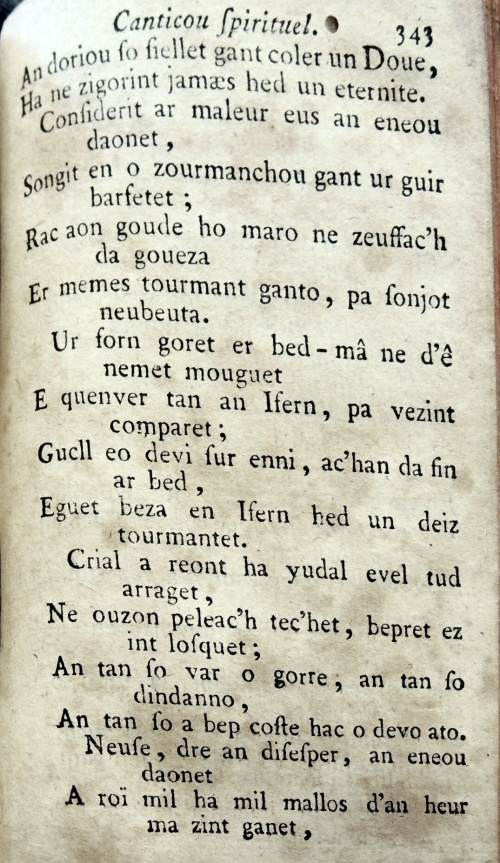 Canticou ſpirituel. 343
An doriou ſo ſiellet gant coler un Doue,
Ha ne zigorint jamæs hed un eternite.
Conſiderit ar maleur eus an eneou
daonet,
Songit en o zourmanchou gant ur guir
barfetet;
Rac aon goude ho maro ne zeuffac'h
da goueza
Er memes tourmant ganto, pa ſonjot
neubeuta.
Ur forn goret er bed-mâ ne d'ê
nemet mouguet
E quenver tan an Ifern, pa vezint
comparet;
Guell eo devi ſur enni, ac'han da fin
ar bed,
Eguet beza en Ifern hed un deiz
tourmantet.
Crial a reont ha yudal evel tud
arraget,
Ne ouzon peleac'h tec'het, bepret ez
int loſquet;
An tan ſo var o gorre, an tan ſo
dindanno,
An tan ſo a bep coſte hac o devo ato.
Neuſe, dre an diſeſper, an eneou
daonet
A roï mil ha mil mallos d'an heur
ma zint ganet,